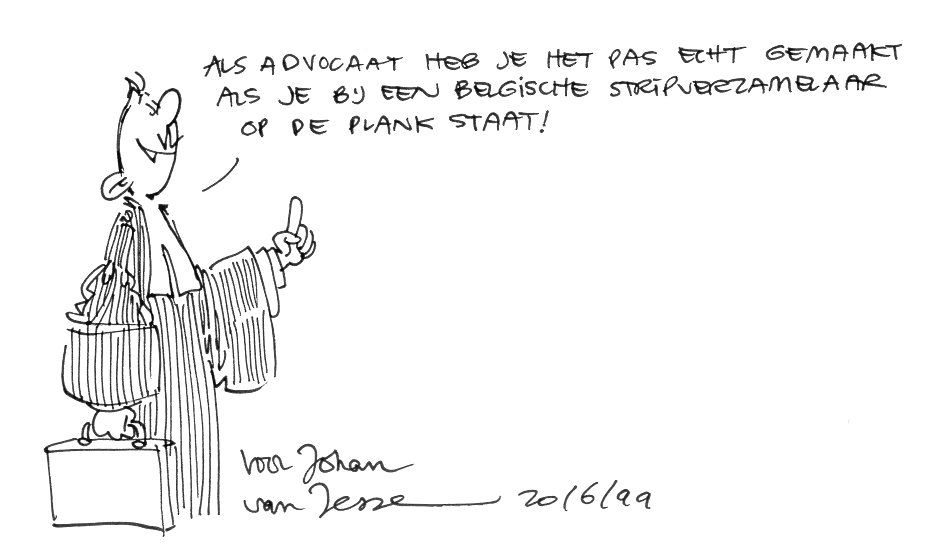 ALS ADVOCAAT HEB JE HET PAS ECHT GEMAAKT
ALS JE BIJ EEN BELGISCHE STRIPVERZAMELAAR
OP DE PLANK STAAT!
voor Johan
van Jesse 20/6/99